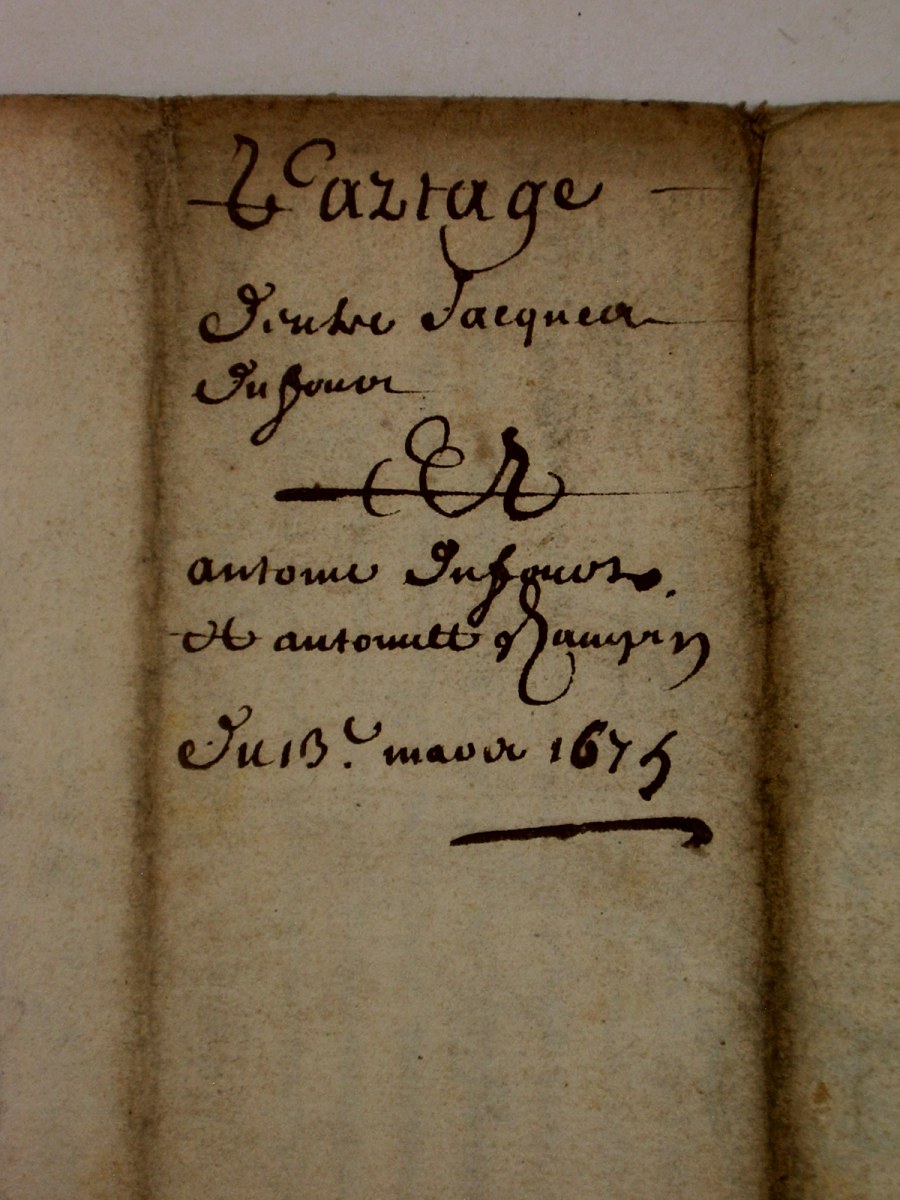 Partage
d'entre Jacques
Dufour
Et
antoine Dufour
et antoinette Rampin
Du 13e mars 1675